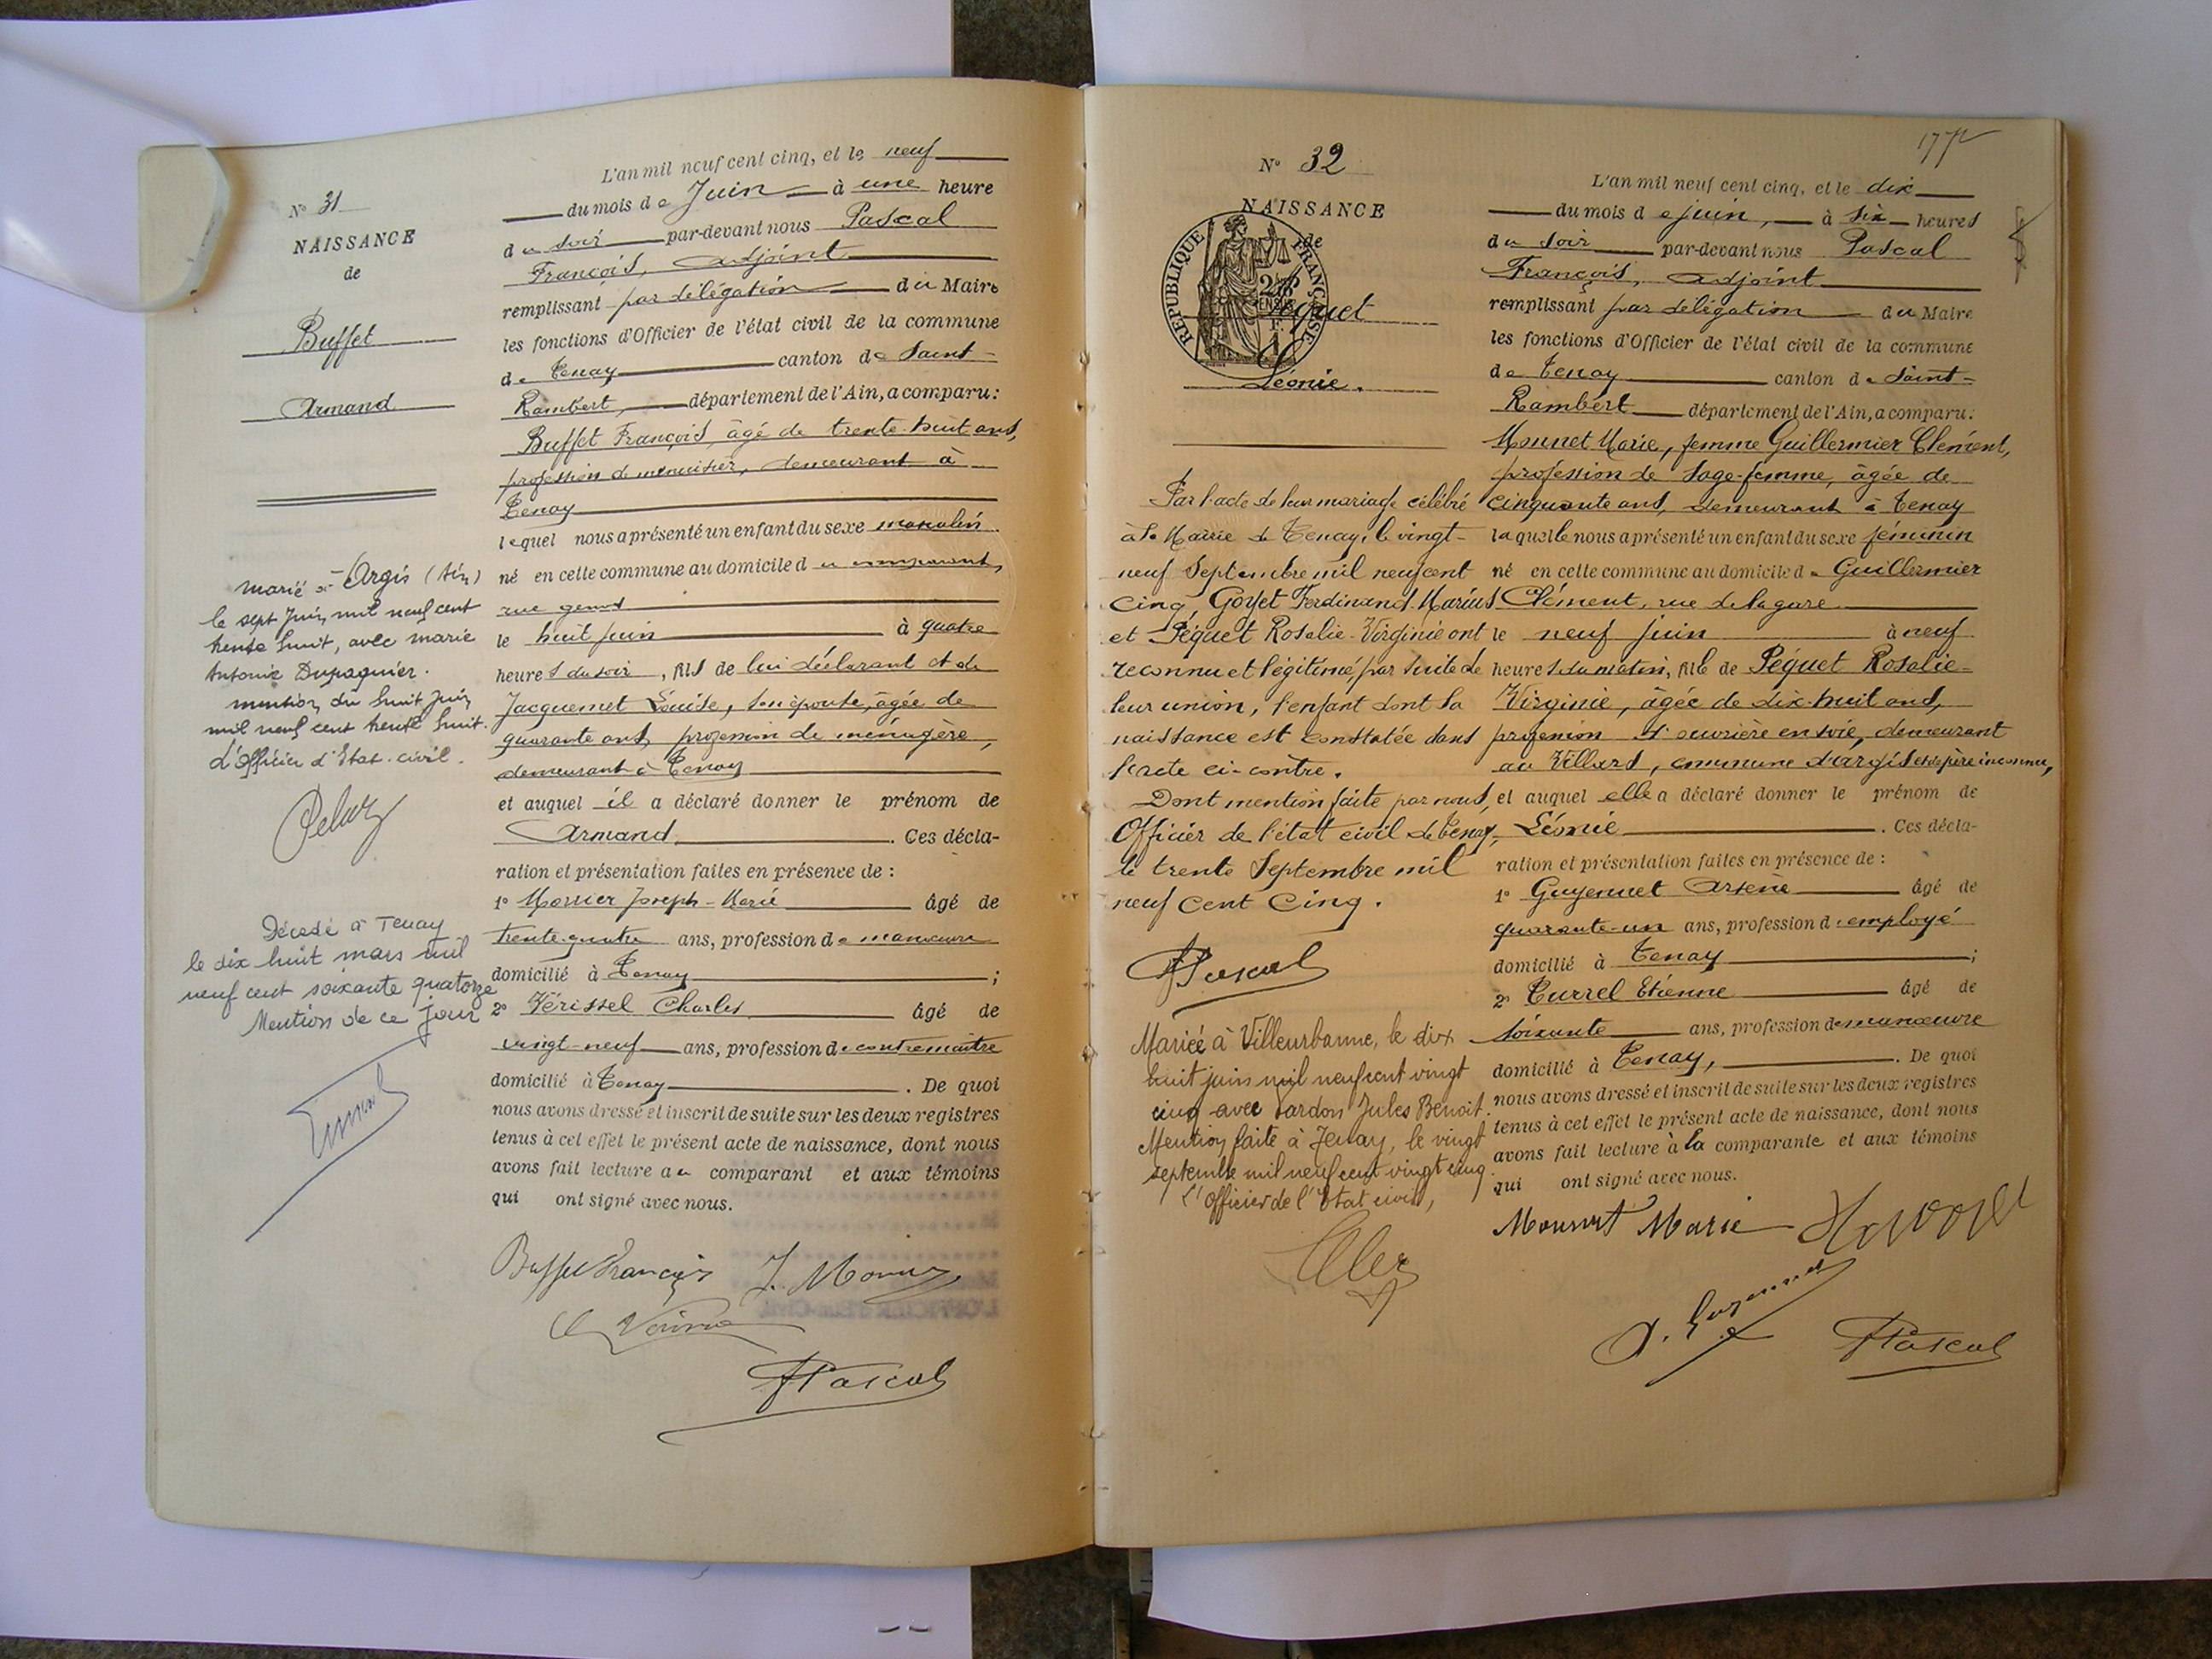 N° 31
NAISSANCE
de
Buffet
Armand
marié à Argis (Ain)
le sept Juin mil neuf cent
trente huit, avec Marie
Antonie Dupaquier.
mention du huit Juin
mil neuf cent trente huit.
L'Officier d'Etat-civil.
Décédé à Tenay
le dix huit mars mil
neuf cent soixante quatorze
Mention de ce jour
L'an mil neuf cent cinq, et le neuf
du mois de Juin à une heure
du soir par-devant nous Pascal
François, adjoint
remplissant par délégation du Maire
les fonctions d'Officier de l'état civil de la commune
de Tenay canton de Saint-
Rambert, département de l'Ain, a comparu:
Buffet François, âgé de trente-huit ans,
profession de menuisier, demeurant à
Tenay
lequel nous a présenté un enfant du sexe masculin
né en cette commune au domicile du comparant,
rue
le huit juin à quatre
heures du soir, fils de lui déclarant et de
Jacquemet Louise, son épouse, âgée de
quarante ans, profession de ménagère,
demeurant à Tenay
et auquel il a déclaré donner le prénom de
Armand. Ces décla-
ration et présentation faites en présence de :
1° Monier Joseph-Marie âgé de
trente-quatre ans, profession de manœuvre
domicilié à Tenay ;
2° Vérissel Charles âgé de
vingt-neuf ans, profession de contremaître
domicilié à Tenay. De quoi
nous avons dressé et inscrit de suite sur les deux registres
tenus à cet effet le présent acte de naissance, dont nous
avons fait lecture au comparant et aux témoins
qui ont signé avec nous.
Buffet François J. Monier
Pascal
177
N° 32
NAISSANCE
de
REPUBLIQUE FRANÇAISE
Péquet
Léonie.
Par l'acte de leur mariage célébré
à la Mairie de Tenay, le vingt-
neuf Septembre mil neuf cent
cinq, Goyet Ferdinand-Marius
et Péquet Rosalie-Virginie ont
reconnu et légitimé, par suite de
leur union, l'enfant dont la
naissance est constatée dans
l'acte ci-contre.
Dont mention faite par nous,
Officier de l'état civil de Tenay,
le trente Septembre mil
neuf cent cinq.
Pascal
Mariée à Villeurbanne, le dix
huit juin mil neuf cent vingt
cinq avec Jardon Jules Benoit.
Mention faite à Tenay, le vingt
septembre mil neuf cent vingt cinq.
L'Officier de l'Etat civil,
L'an mil neuf cent cinq, et le dix
du mois de juin, à six heures
du soir par-devant nous Pascal
François, adjoint
remplissant par délégation du Maire
les fonctions d'Officier de l'état civil de la commune
de Tenay canton de Saint-
Rambert département de l'Ain, a comparu:
Mounet Marie, femme Guillermier Clément,
profession de sage-femme, âgée de
cinquante ans, demeurant à Tenay
laquelle nous a présenté un enfant du sexe féminin
né en cette commune au domicile de Guillermier
Clément, rue de la gare
le neuf juin à neuf
heures du matin, fille de Péquet Rosalie-
Virginie, âgée de dix-huit ans,
profession d'ouvrière en soie, demeurant
au Villard, commune d'argis et de père inconnu,
et auquel elle a déclaré donner le prénom de
Léonie. Ces décla-
ration et présentation faites en présence de :
1° Guyennet Arsène âgé de
quarante-un ans, profession d'employé
domicilié à Tenay ;
2° Turrel Etienne âgé de
soixante ans, profession de manœuvre
domicilié à Tenay, . De quoi
nous avons dressé et inscrit de suite sur les deux registres
tenus à cet effet le présent acte de naissance, dont nous
avons fait lecture à la comparante et aux témoins
qui ont signé avec nous.
Mounet Marie
Pascal